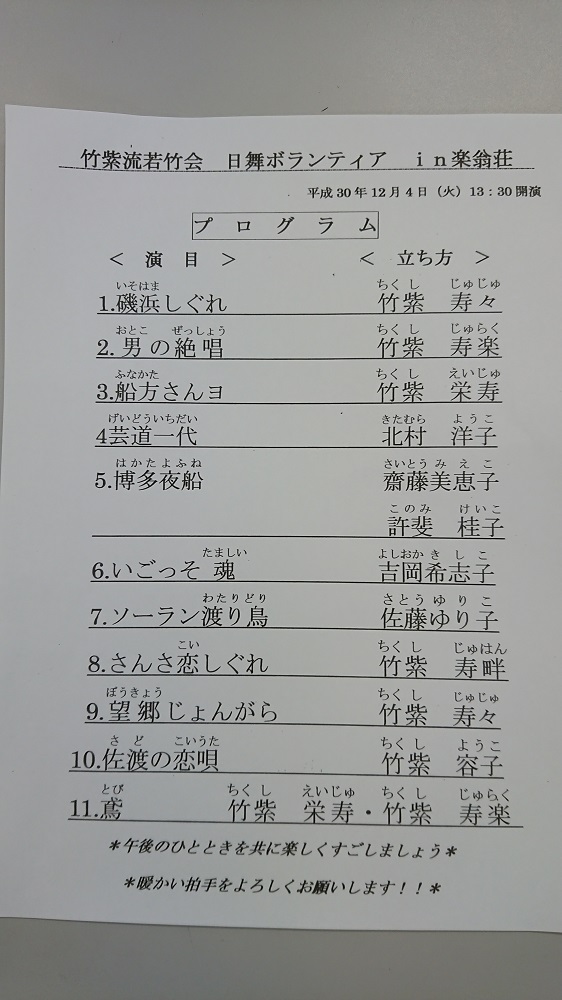 竹紫流若竹会　日舞ボランティア　ｉｎ楽翁荘
平成30年12月4日（火）13：30開演
プログラム
＜　演　目　＞　＜　立ち方　＞
いそはま　ちくし　じゅじゅ
1.磯浜しぐれ　竹紫　寿々
おとこ　ぜっしょう　ちくし　じゅらく
2.男の絶唱　竹紫　寿楽
ふなかた　ちくし　えいじゅ
3.船方さんヨ　竹紫　栄寿
げいどういちだい　きたむら　ようこ
4芸道一代　北村　洋子
はかたよふね　さいとうみえこ
5.博多夜船　齋藤美恵子
このみ　けいこ
許斐　桂子
たましい　よしおかきしこ
6.いごっそ魂　吉岡希志子
わたりどり　さとうゆりこ
7.ソーラン渡り鳥　佐藤ゆり子
こい　ちくし　じゅはん
8.さんさ恋しぐれ　竹紫　寿畔
ぼうきょう　ちくし　じゅじゅ
9.望郷じょんがら　竹紫　寿々
さど　こいうた　ちくし　ようこ
10.佐渡の恋唄　竹紫　容子
とび　ちくし　えいじゅ　ちくし　じゅらく
11.鳶　竹紫　栄寿・竹紫　寿楽
＊午後のひとときを共に楽しくすごしましょう＊
＊暖かい拍手をよろしくお願いします！！＊